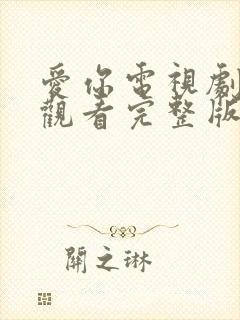 愛你電視劇
觀看完整版
關之琳